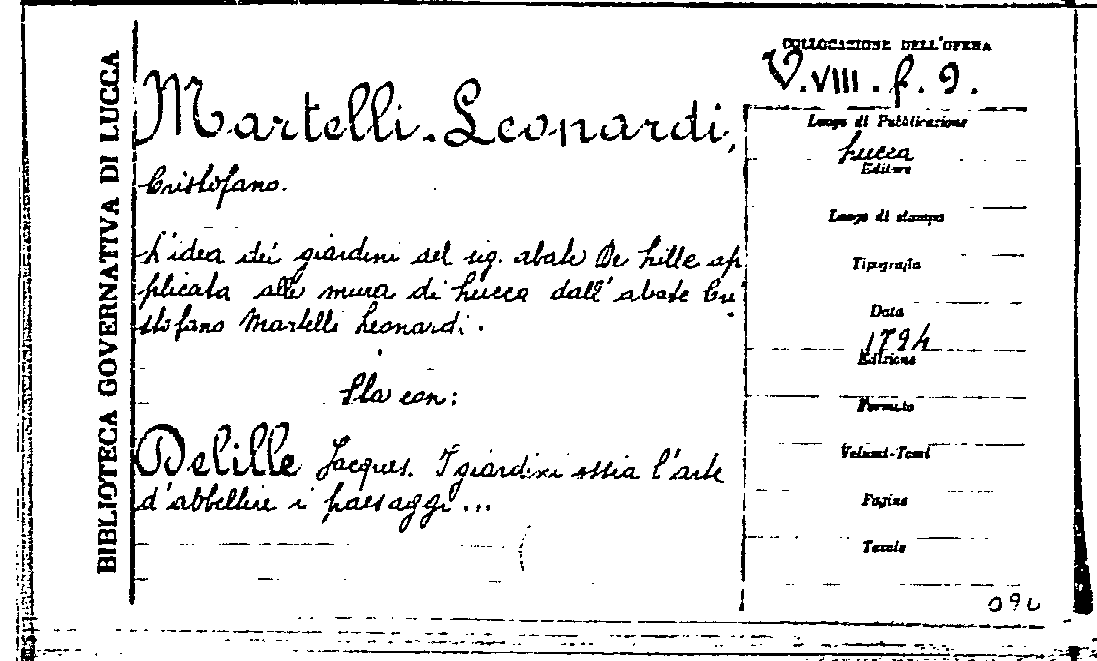 BIBLIOTECA GOVERNATIVA DI LUCCA
COLLOCAZIONE DELL'OPERA
V.VIII.f.9.
Martelli-Leonardi,
Cristofano.
L'idea dei giardini del sig. abate De Lille ap
plicata alle mura di Lucca dall'abate Cri
stofano Martelli Leonardi.
Sta con:
Delille Jacques. I giardini ossia l'arte
d'abbellire i paesaggi...
Luogo di Pubblicazione
Lucca
Editore
Luogo di stampa
Tipografia
Data
1794
Edizione
Formato
Volumi-Tomi
Pagine
Tavole